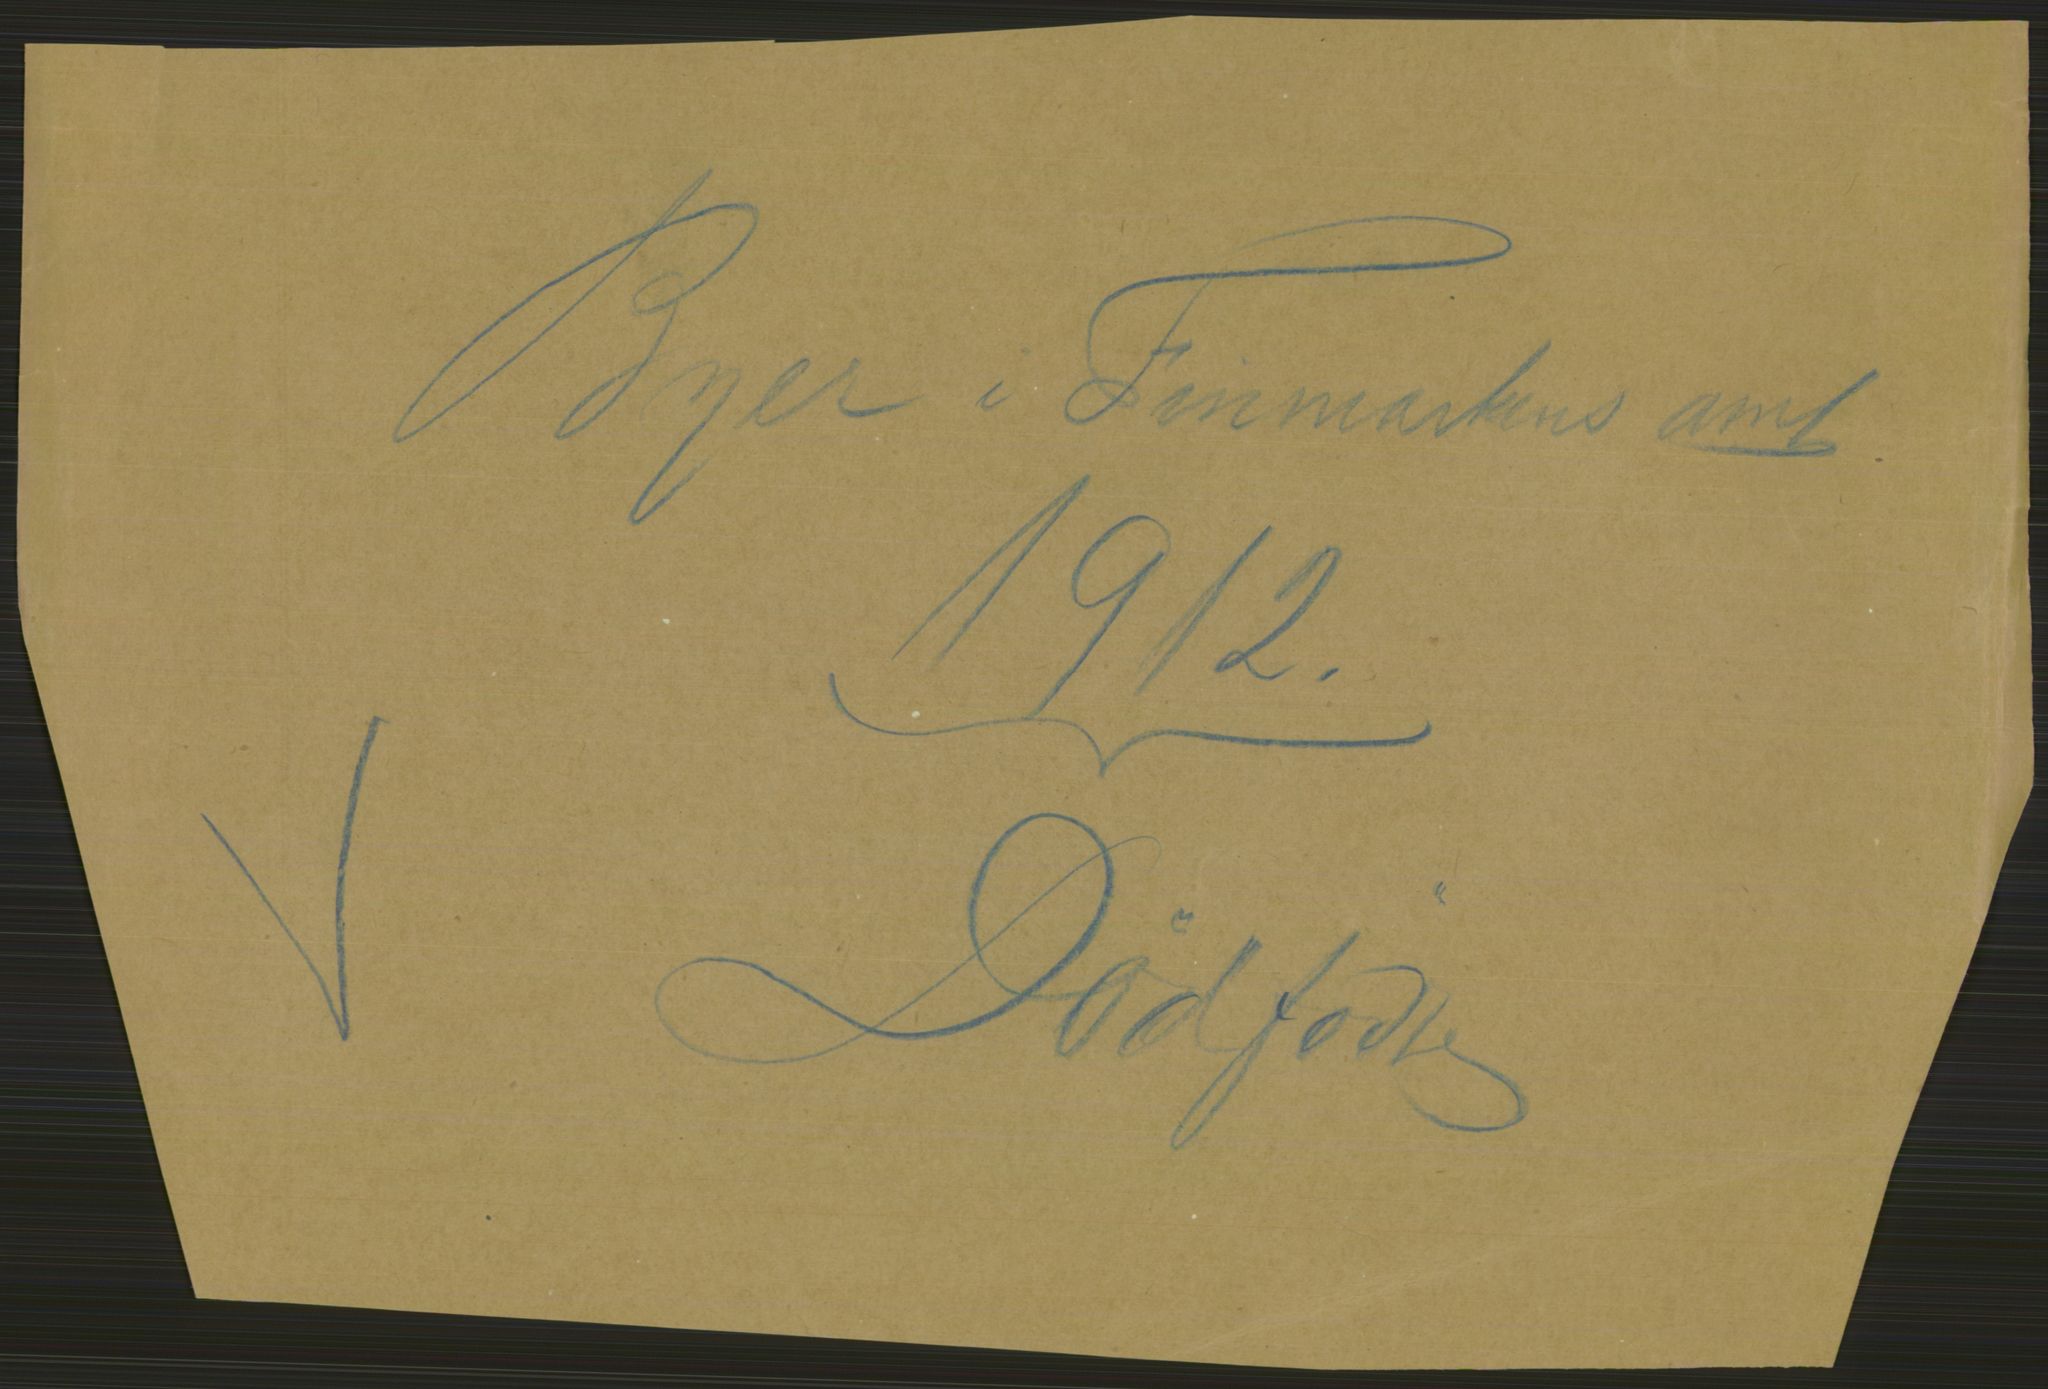 Byer i Finmarkens amt
1912.
Dödfödte